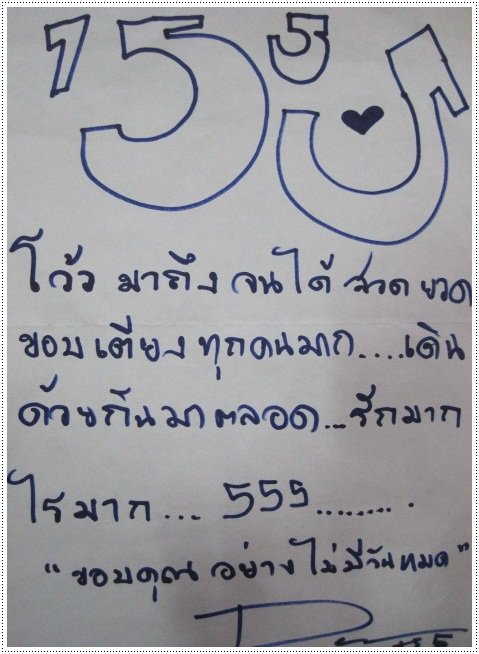 15 ปี
โว้ว มาถึง จนได้ สวด ยวด
ขอบเตียง ทุกคนมาก....เดิน
ด้วยกันมาตลอด...รักมาก
ไรมาก... 555.........
“ขอบคุณ อย่างไม่มีวันหมด”